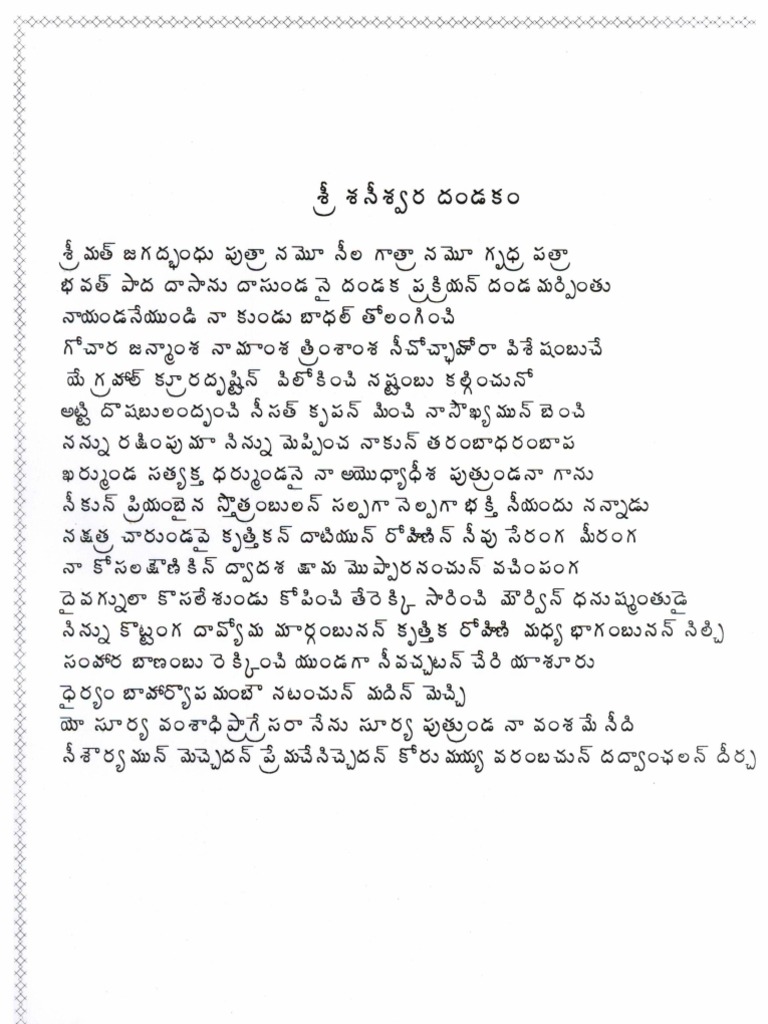 శ్రీ శనీశ్వర దండకం
శ్రీ మత్ జగద్బంధు పుత్రా నమో నీల గాత్రా నమో గృధ్ర పత్రా
భవత్ పాద దాసాను దాసుండ నై దండక ప్రక్రియన్ దండ మర్పింతు
నాయండనేయుండి నా కుండు బాధల్ తోలంగించి
గోచార జన్మాంశ నామాంశ త్రింశాంశ నీచోచ్ఛాహోరా విశేషంబుచే
యే గ్రహాల్ క్రూరదృష్టిన్ విలోకించి నష్టంబు కల్గించునో
అట్టి దొషబులందృంచి నీసత్ కృపన్ మించి నాసౌఖ్యమున్ బెంచి
నన్ను రక్షింపుమా నిన్ను మెప్పించ నాకున్ తరంబాధరంబాప
ఖర్ముండ సత్యక్త ధర్ముండనై నా అయొధ్యాధీశ పుత్రుండనా గాను
నీకున్ ప్రియంబైన స్తొత్రంబులన్ సల్పగా నెల్పగా భక్తి నీయందు నన్నాడు
నక్షత్ర చారుండవై కృత్తికన్ దాటియున్ రోహిణిన్ నీవు సేరంగ మీరంగ
నా కోసలక్షొణికిన్ ద్వాదశ క్షామ మొప్పారనంచున్ వచింపంగ
దైవగ్నులా కొసలేశుండు కోపించి తేరెక్కి సారించి మౌర్విన్ ధనుష్మంతుడై
నిన్ను కొట్టంగ దావ్యోమ మార్గంబునన్ కృత్తిక రోహిణి మధ్య భాగంబునన్ నిల్చి
సంహార బాణంబు రెక్కించి యుండగా నీవచ్చటన్ చేరి యాశూరు
ధైర్యం బాహార్యొప మంబౌ నటంచున్ మదిన్ మెచ్చి
యో సూర్య వంశాధిప్రాగ్రేసరా నేను సూర్య పుత్రుండ నా వంశమే నీది
నీశౌర్యమున్ మెచ్చెదన్ ప్రేమచేనిచ్చెదన్ కోరుమయ్య వరంబచున్ దద్వాంఛలన్ దీర్చ